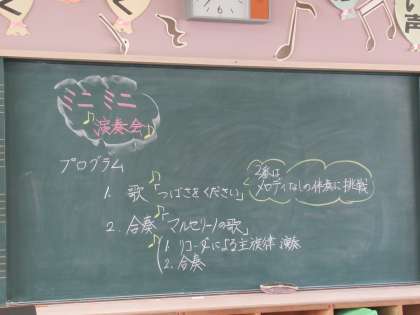 ミニミニ
演奏会
プログラム
1. 歌「つばさをください」
2番は
メロディなしの伴奏に挑戦
2. 合奏「マルセリーノの歌」
1. リコーダによる主旋律演奏
2. 合奏